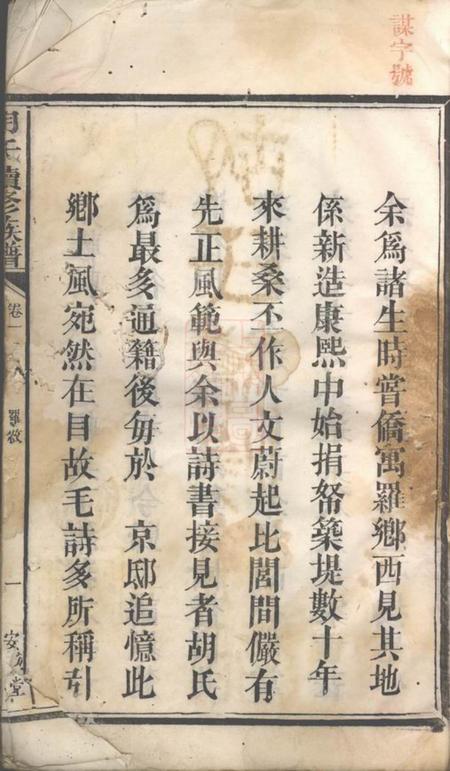 謀字號
余爲諸生時嘗僑寓羅鄉西見其地
係新造康熙中始捐帑築堤數十年
來耕桑不作人文蔚起比閭間儼有
先正風範與余以詩書接見者胡氏
爲最多通籍後每於 京邸追憶此
鄉土風宛然在目故毛詩多所稱引
續修族譜
卷一
羅敘
一
安 堂